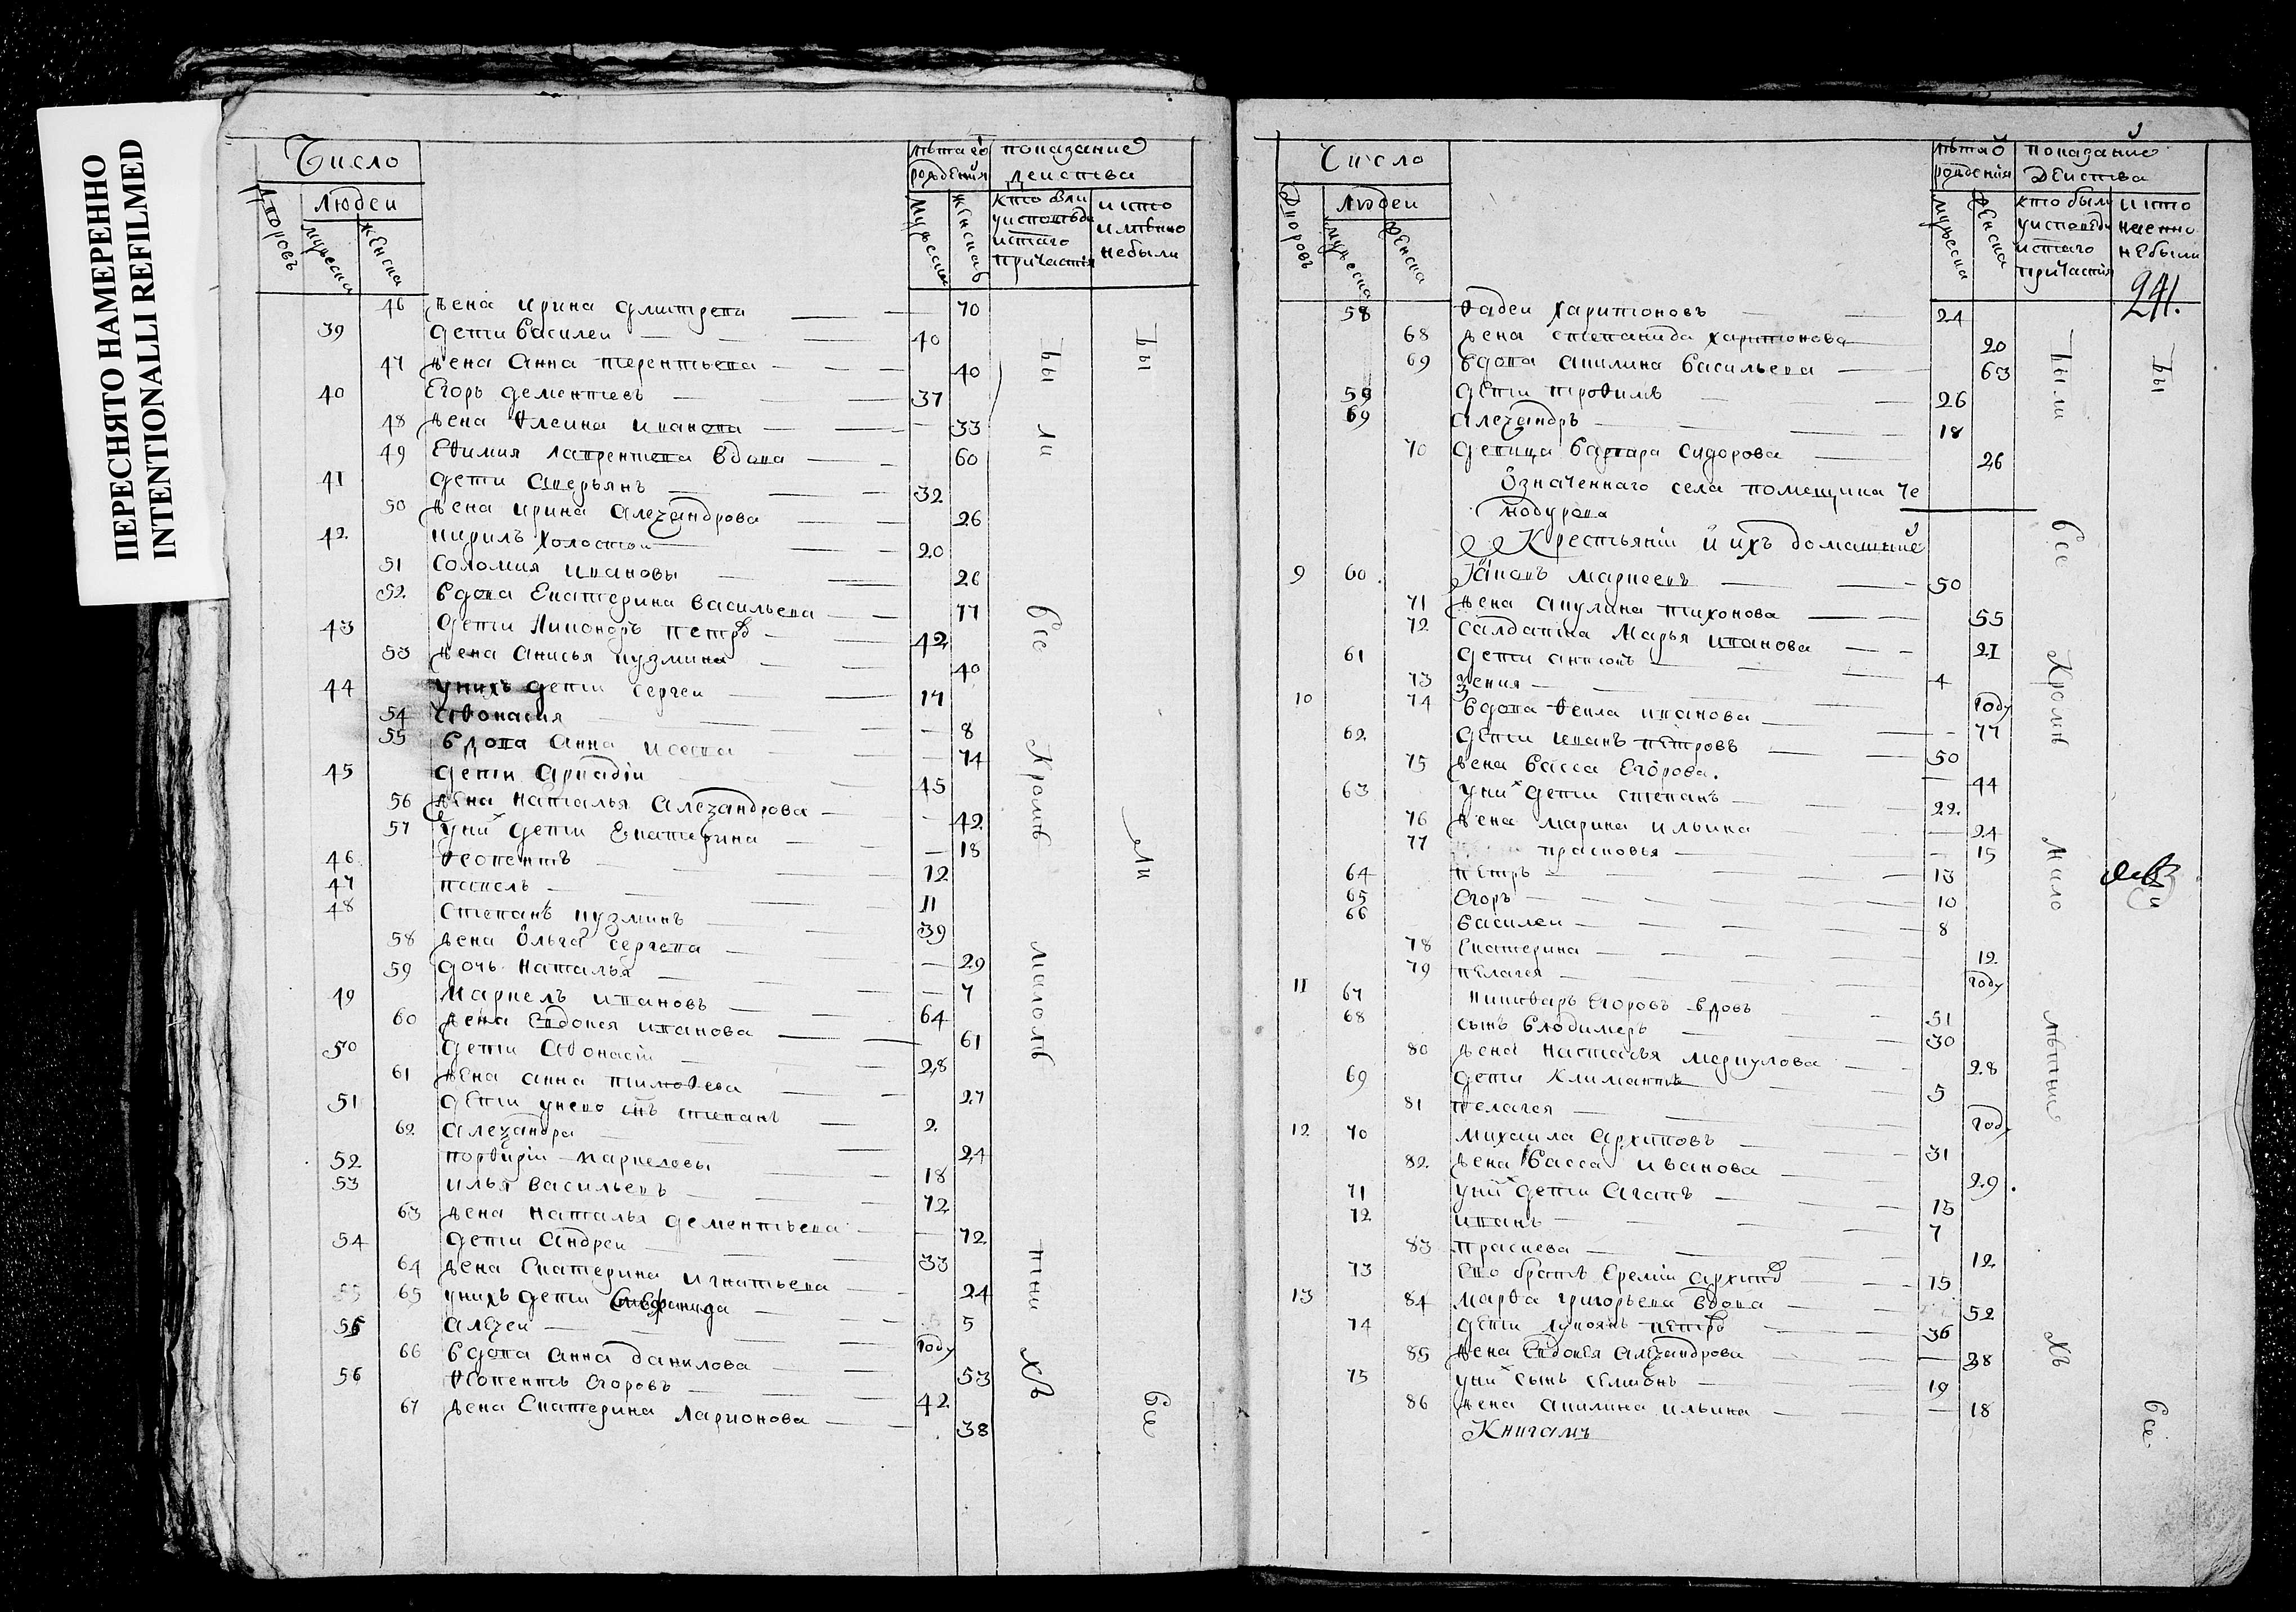 ПЕРЕСНЯТО НАМЕРЕННО
INTENTIONALLI REFILMED
Число
Людеи
Дворовъ
мужеска
женска
лѣта
рождения
мужеска
показание
деиства
кто были
уисповѣди
истаго
причастия
икто
небыли
46 жена ирина дмитрева 70
39 дети василеи 40
47 жена анна терентьева 40
40 Егоръ дементиевъ 37
48 жена иванова 33
49 Еѳимия лаврентева вдова 60
41 дети аверьянъ 32
50 жена ирина алеѯандрова 26
42 кирилъ холостои 20
51 соломия ивановы 26
52 вдова Екатерина васильева 77
43 дети никоноръ петро 42
53 жена анисья кузмина 40
44 унихъ дети сергеи 17
54 аѳонасия 8
55 вдова анна исаева 74
45 дети аркадіи 45
56 жена наталья алеѯандрова 42
57 уних дети Екатерина 18
46 ѳеопентъ 12
47 павелъ 11
48 степанъ кузминъ 39
58 жена ольга сергева 29
59 дочь наталья 7
49 маркелъ ивановъ 64
60 жена евдокея иванова 61
50 дети аѳонасіи 28
61 жена анна тимоѳева 27
51 дети унево снъ степанъ 2
62 алеѯандра 24
52 порѳиріи маркеловы 18
53 илья васильевъ 72
63 жена наталья дементьева 72
54 дети андреи 33
64 жена Екатерина игнатьева 24
55 65 унихъ дети 5
55 алеѯеи году
66 вдова анна данилова 53
56 ѳеопентъ Егоровъ 42
67 жена Екатерина ларионова 38
бы ли все кроме малолѣ тни хъ
бы ли все
Число
Дворовъ
людеи
мужеска
женска
лѣта
рождения
мужеска
женска
показание
деиства
кто были
уисповѣди
истаго
причастия
икто
небыли
241.
58 ѳадеи харитоновъ 24
68 жена степанида харитонова 20
69 вдова акилина васильева 63
59 дети троѳимъ 26
69 алеѯандръ 18
70 девица варвара сидорова 26
означеннаго села помещика че
модурова
Крестьяніи и ихъ домашние
9 60 іванъ маркеевъ 50
71 жена акулина тихонова 55
72 салдатка марья иванова 21
61 дети антонъ 4
73 ѯения году
10 74 вдова ѳекла иванова 77
62 дети иванъ петровъ 50
75 жена васса Егорова. 44
63 уних дети степанъ 22
76 жена марина ильина 24
77 прасковья 15
64 петръ 13
65 Егоръ 10
66 василеи 8
78 Екатерина 12
79 пелагея году
11 67 Егоровъ вдовъ 51
68 сынъ влодимеръ 30
80 жена настасья меркулова 28
69 дети климантъ 5
81 пелагея году
12 70 михаила архиповъ 31
82 жена васса иванова 29
71 уних дети агапъ 13
72 иванъ 7
83 праскева 12
73 Ево братъ Еремии архипо 15
13 84 марѳа григорьева вдова 52
74 дети лукоянъ петро 36
85 жена евдокея алеѯандрова 38
75 уних сынъ семионъ 19
86 жена акилина ильина 18
Книгамъ
были все кромѣ мало лѣтние хъ
бы ли все